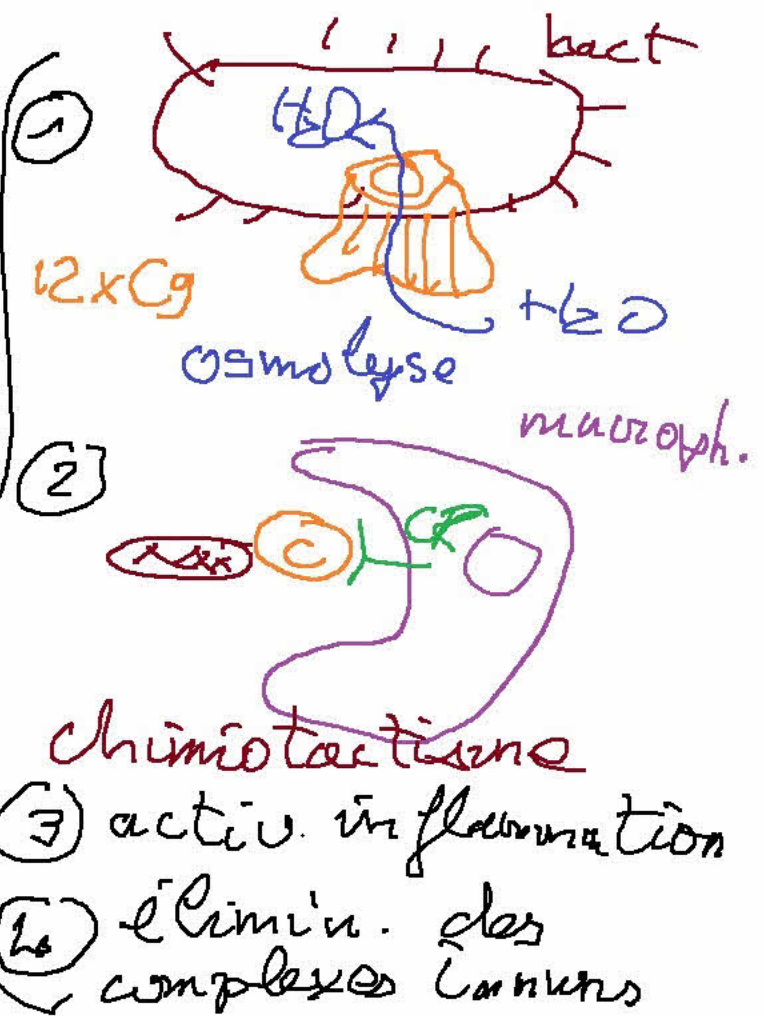 bact
1
H2O
12xC9
H2O
osmolyse
macroph.
2
C CR
chimiotactisme
3 activ. inflammation
élimin. des
complexes immuns